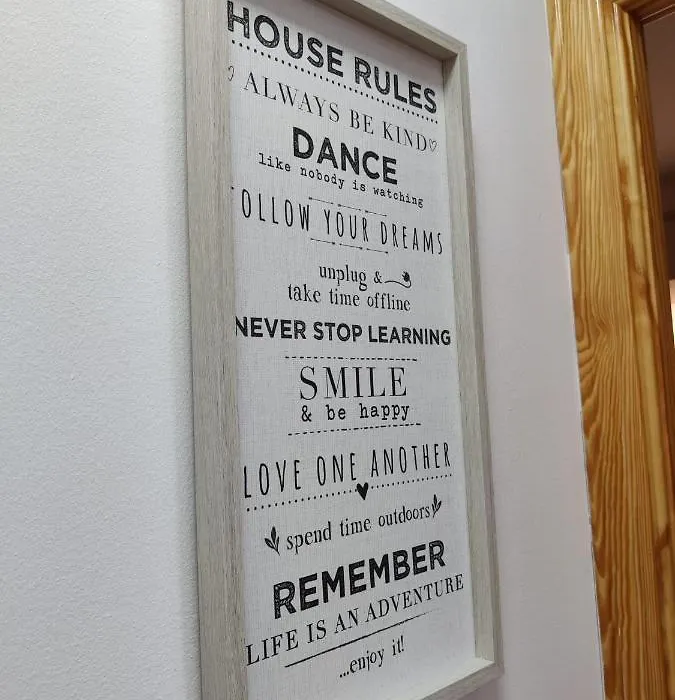 HOUSE RULES
ALWAYS BE KIND
DANCE
like nobody is watching
OLLOW YOUR DREAMS
unplug &
take time offline
NEVER STOP LEARNING
SMILE
& be happy
LOVE ONE ANOTHER
spend time outdoors
REMEMBER
LIFE IS AN ADVENTURE
...enjoy it!